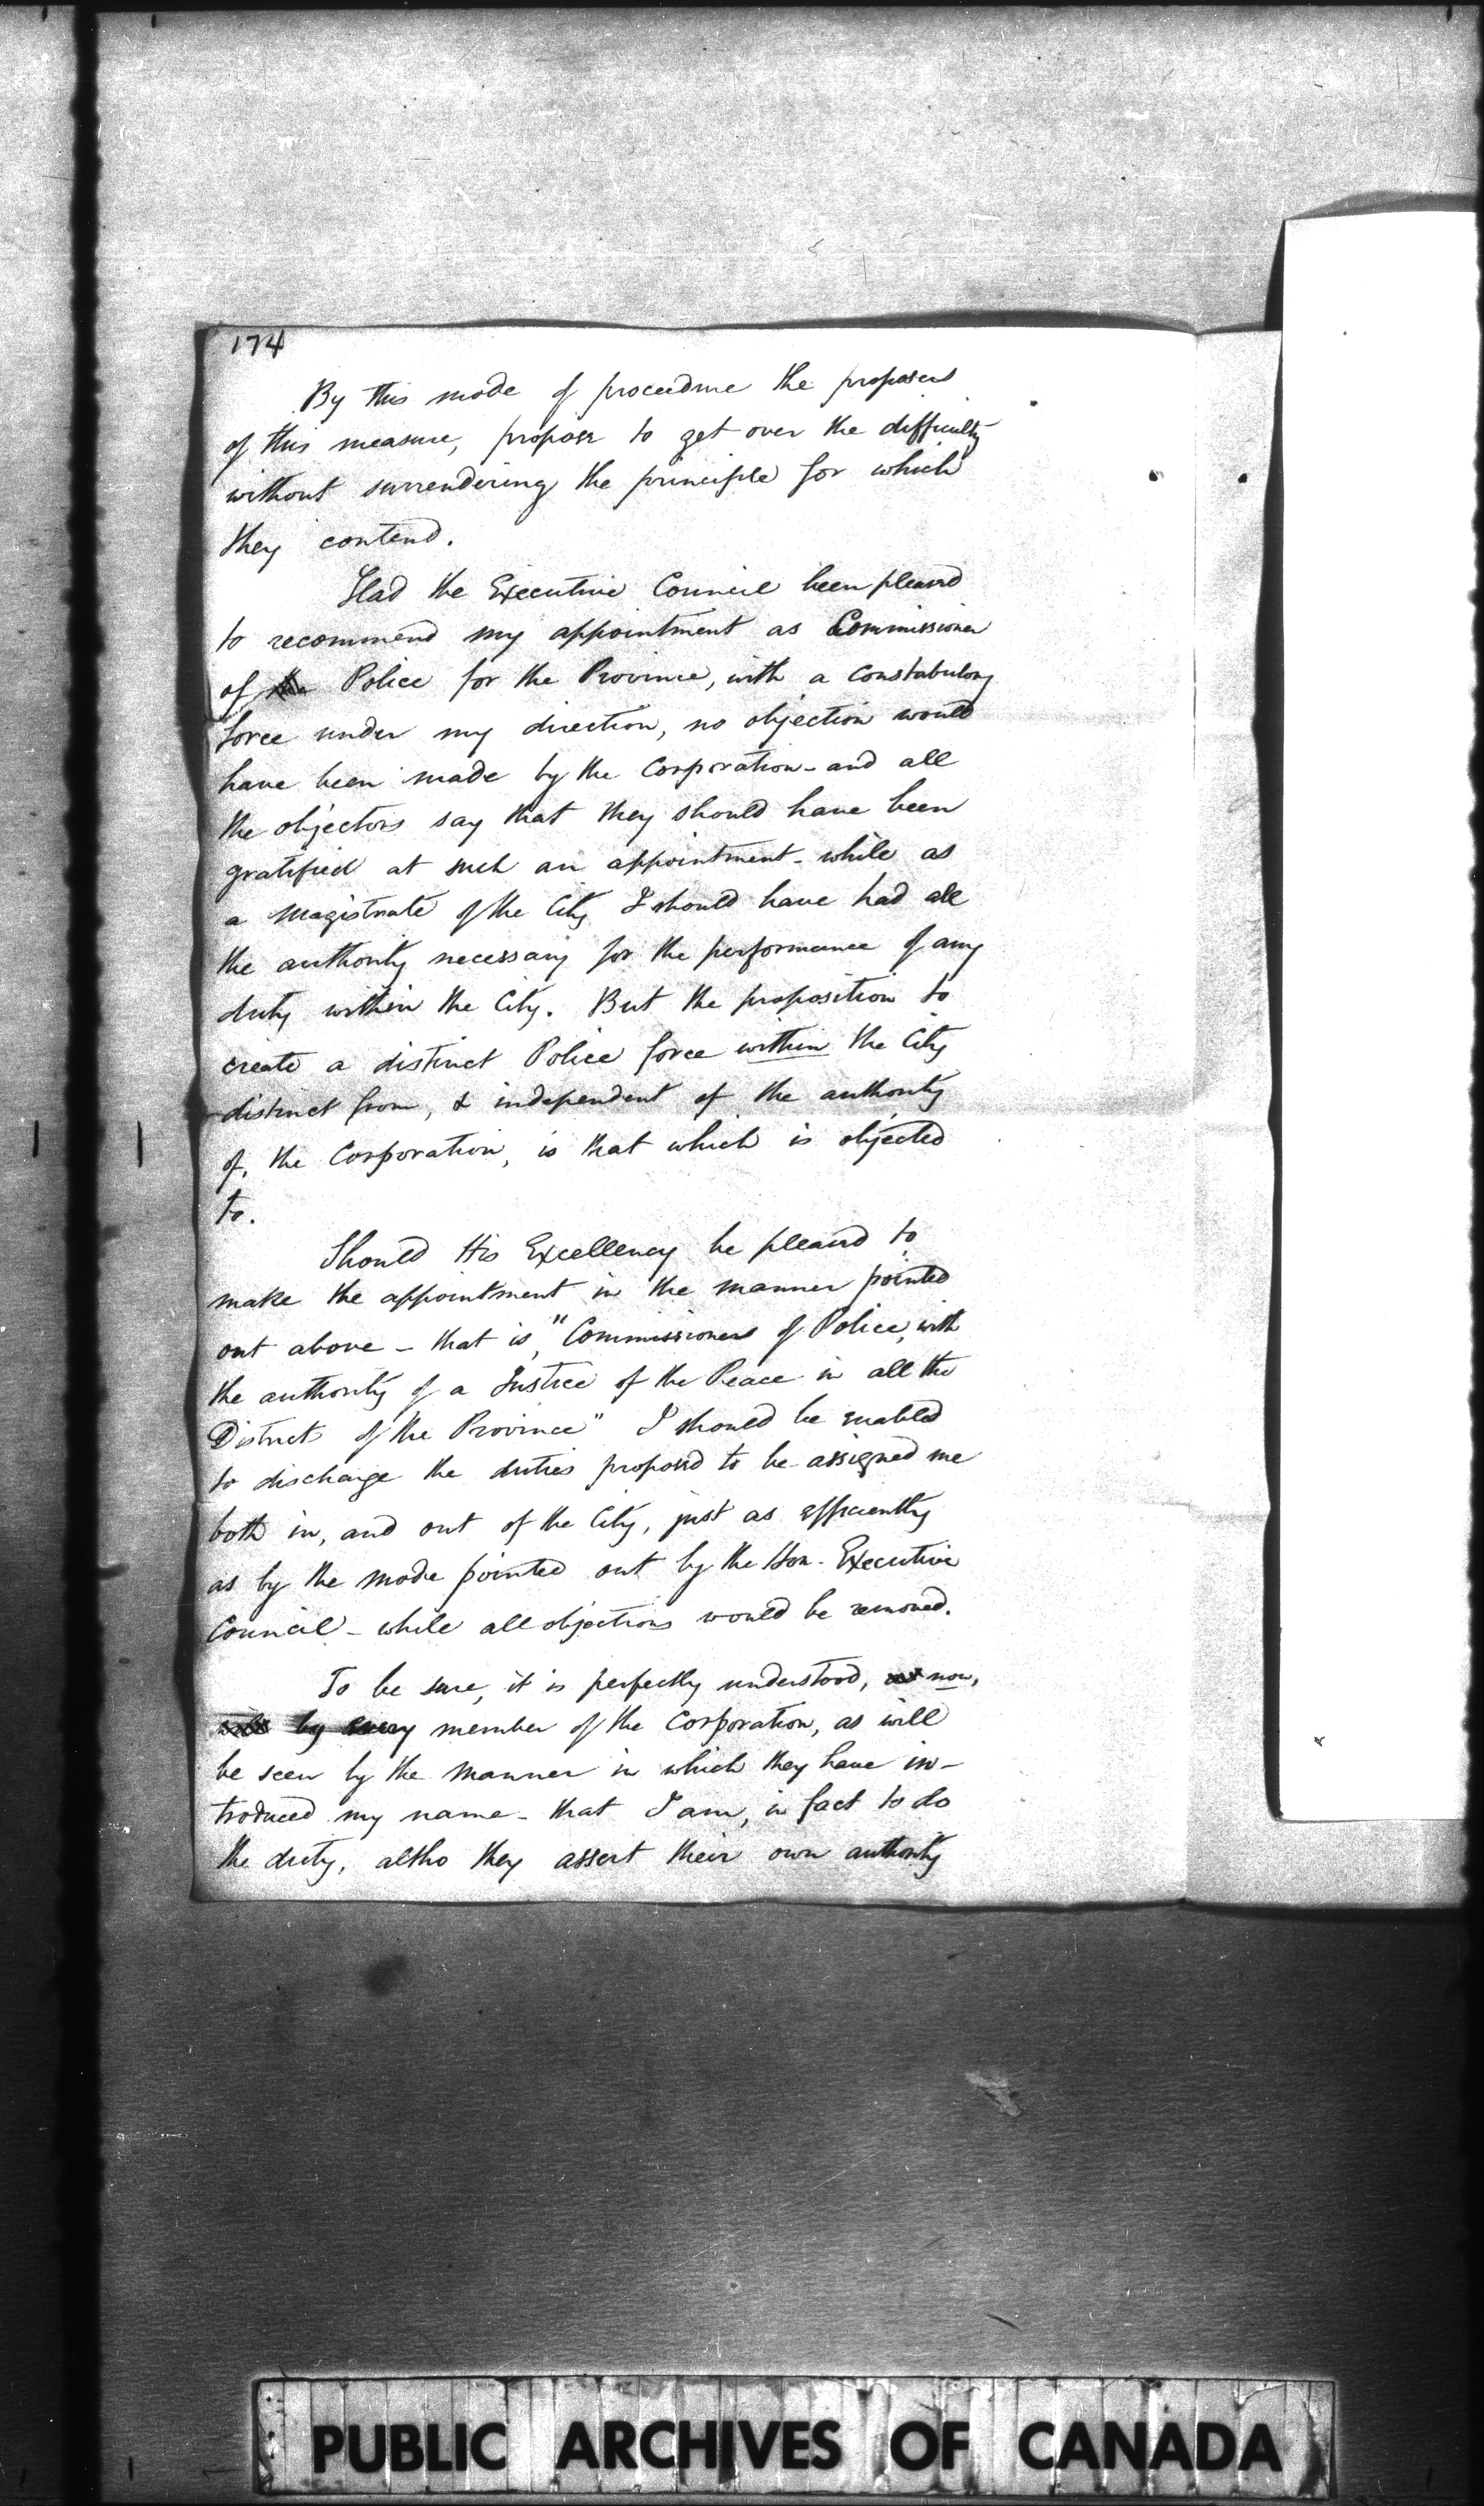 174
By this mode of proceedure the proposers
of this measure, propose to get over the difficulty
without surrendering the principle for which
they contend.
Had the Executive Council been pleased
to recommend my appointment as Commissioner
of the Police for the Province, with a constabulary
force under my direction, no objection would
have been made by the Corporation - and all
the objectors say that they should have been
gratified at such an appointment - while as
a Magistrate of the City I should have had all
the authority necessary for the performance of any
duty within the City. But the proposition to
create a distinct Police force within the City
distinct from, & independent of the authority
of, the Corporation, is that which is objected
to.
Should His Excellency be pleased to
make the appointment in the manner pointed
out above - that is, "Commissioners of Police, with
the authority of a Justice of the Peace in all the
Districts of the Province" I should be enabled
to discharge the duties proposed to be assigned me
both in, and out of the City, just as efficiently
as by the mode pointed out by the Hon. Executive
Council - while all objections would be removed.
To be sure, it is perfectly understood, now,
by every member of the Corporation, as will
be seen by the manner in which they have in-
troduced my name - that I am, in fact to do
the duty, altho they assert their own authority
PUBLIC ARCHIVES OF CANADA